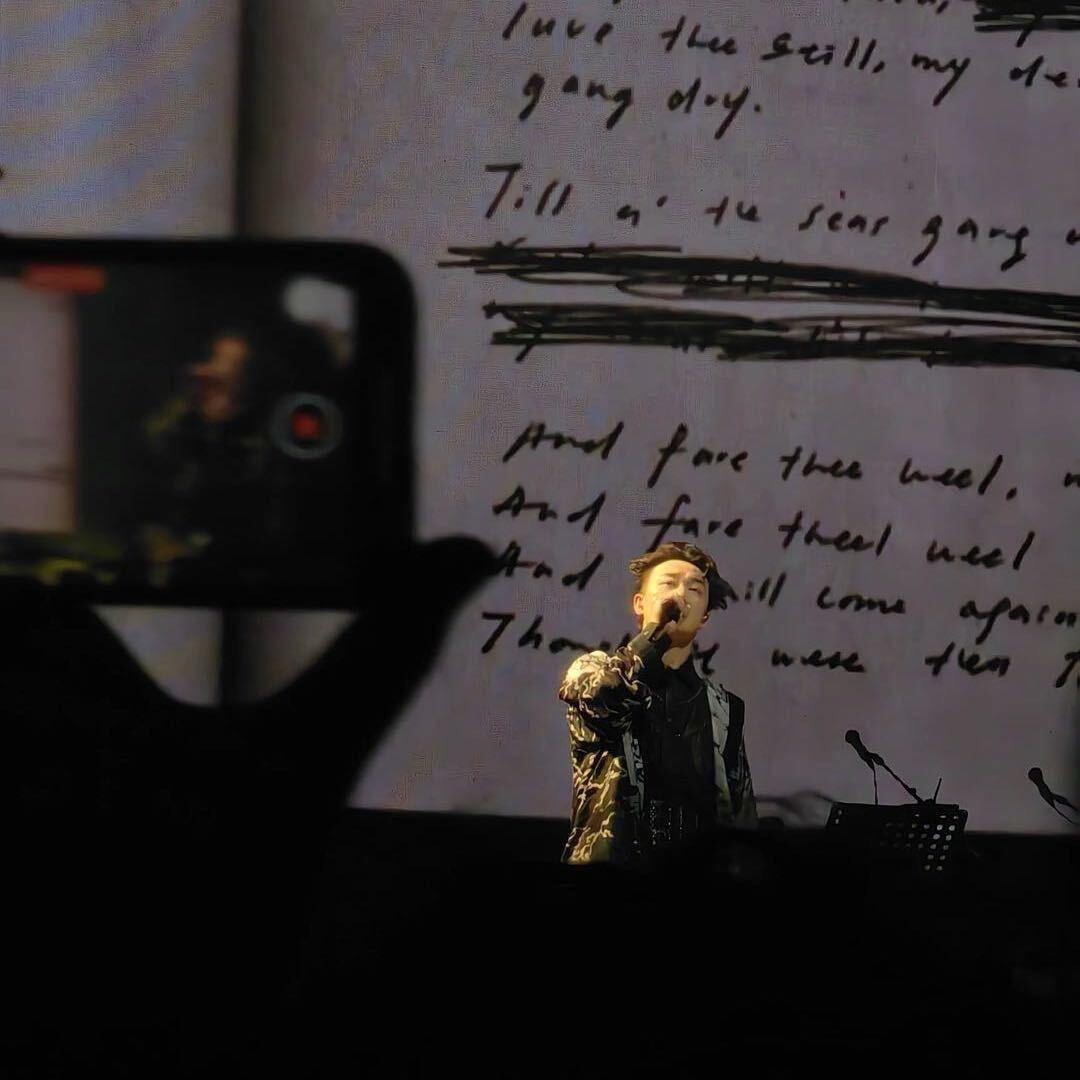 luve thee still, my
gang dry.
Till a' the seas gang
And fare thee weel,
And fare theel weel
And ill come again
were ten